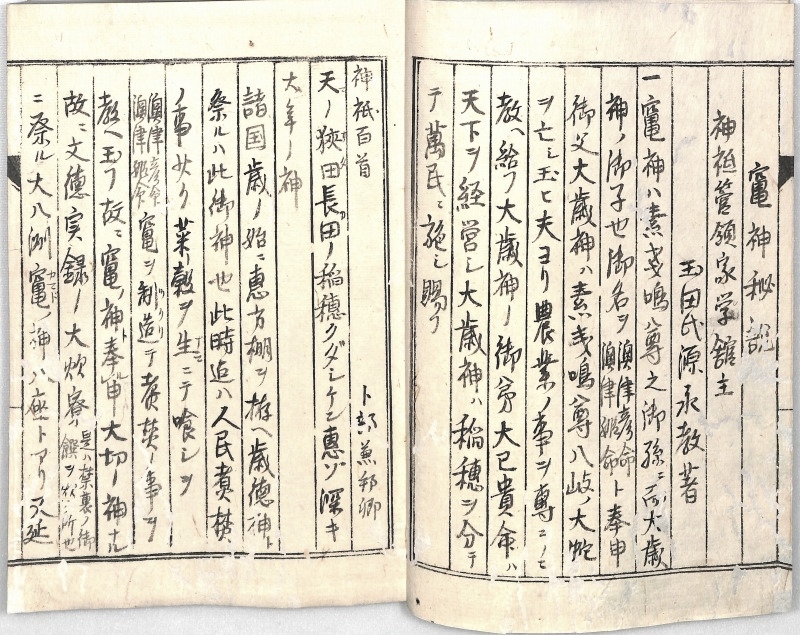 竃神秘説
神祇管領家学館主
玉田氏源永教著
一竃神ハ素戔嗚尊之御孫ニ而大歳
神ノ御子也御名ヲ澳津彦命澳津姫命ト奉申
御父大歳神ハ素戔嗚尊八岐ノ大蛇
ヲ亡シ玉ヒ夫ヨリ農業ノ事ヲ専ニノミ
教ヘ給フ大歳神ノ御弟大已貴命ハ
天下ヲ経営シ大歳神ハ稲穂ヲ分テ
テ萬民ニ施シ賜フ
神祇百首
卜部兼邦卿
天ノ狭田長田ノ稲穂クダシケン恵ゾ深キ
大年ノ神
諸国歳ノ始ニ恵方棚ヲ拵ヘ歳徳神ト
祭ルハ此御神也此時迄ハ人民煮焚
ノ事ナク菜穀ヲ生ニテ喰シヲ
澳津彦命澳津姫命竃ヲ制造テ煮焚ノ事ヲ
教ヘ玉フ故ニ竃ノ神奉申大切ノ神ナル
故ニ文徳実録ノ大炊寮ハ是ハ禁裏ノ御饌ヲ炊ク所也
ニ祭ル大八洲竃ノ神八座トアリ又延